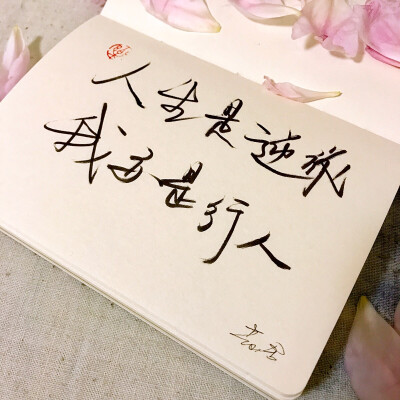 人生是逆旅
我亦是行人